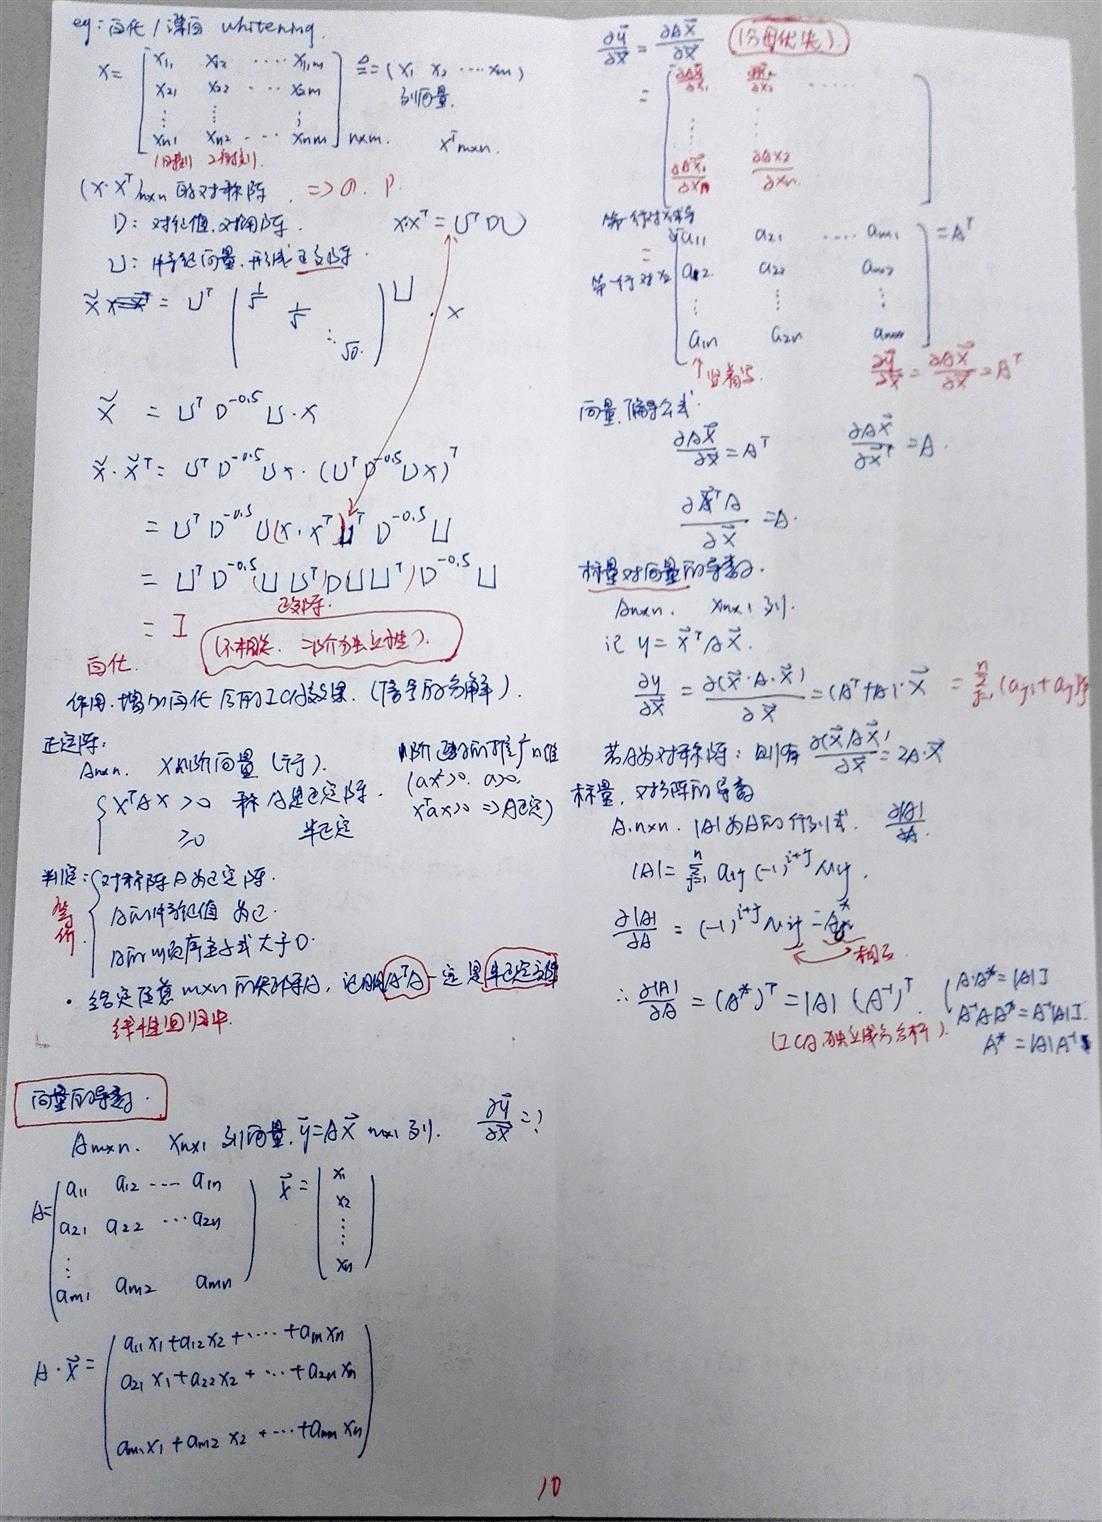 eg: 白化/漂白 whitening.
X = [ x11 x12 ···· x1,m
x21 x22 ··· x2m
⋮ ⋮ ⋮
xn1 xn2 ··· xnm ] n×m.
≜ (x1 x2 ··· xm)
列向量.
X^T m×n.
(X·X^T) n×n 的对称阵 ⇒
D: 对角阵.
X·X^T = U^T D U
U: 特征向量, 形成正交阵.
X̃ = U^T ( 1/√ 1/√ ⋱ ) U · X
X̃ = U^T D^-0.5 U·X
X̃·X̃^T = U^T D^-0.5 U X·(U^T D^-0.5 U X)^T
= U^T D^-0.5 U (X·X^T) U^T D^-0.5 U
= U^T D^-0.5 (U U^T) D (U U^T) D^-0.5 U
正交阵.
= I (不相关, 二阶独立性).
白化.
作用: 增加白化后的ICA效果. (信号的分解).
正定阵:
A n×n. X n阶向量
{ X^T A X > 0 称 A是正定阵.
≥ 0 半正定
(ax² > 0. a > 0.
x^T a x > 0 ⇒ A正定)
判定: { 对称阵A为正定阵.
等价. A的特征值为正.
A的顺序主子式大于0.
· 给定任意 m×n 的矩阵A, A^T A 一定是半正定方阵
线性回归中.
向量的导数.
A m×n. X n×1 列向量, y⃗ = A X⃗ m×1 列. ∂y⃗/∂x⃗ = ?
A = ( a11 a12 ···· a1n
a21 a22 ··· a2n
⋮
am1 am2 amn )
x⃗ = ( x1
x2
⋮
xn )
A·x⃗ = ( a11 x1 + a12 x2 + ···· + a1n xn
a21 x1 + a22 x2 + ··· + a2n xn
am1 x1 + am2 x2 + ··· + amn xn )
∂y⃗/∂x⃗ = ∂AX⃗/∂x⃗ (分母优先)
= [ ∂Ax⃗/∂x1 ······
⋮ ⋮
∂Ax⃗/∂xn ]
第一行对x1求导
第二行对x2
= [ a11 a21 ···· am1
a12 a22 am2
⋮ ⋮ ⋮
a1n a2n amn ] = A^T
↑竖着写.
∂y⃗/∂x⃗ = ∂AX⃗/∂x⃗ = A^T
向量, 偏导公式:
∂AX⃗/∂x⃗ = A^T ∂AX⃗/∂x⃗^T = A.
∂x⃗^T A/∂x⃗ = A.
标量对向量的导数.
A n×n. X n×1 列.
记 y = x⃗^T A x⃗.
∂y/∂x⃗ = ∂(x⃗·A·x⃗)/∂x⃗ = (A^T + A)·x⃗
若A为对称阵: 则有 ∂(x⃗Ax⃗)/∂x⃗ = 2A·x⃗
标量, 对矩阵的导数
A. n×n. |A| 为A的行列式. ∂|A|/∂A.
|A| = Σ_{j=1}^n aij (-1)^{i+j} Mij.
∂|A|/∂A = (-1)^{i+j} Mij = A*
相反
∴ ∂|A|/∂A = (A*)^T = |A| (A^-1)^T.
(ICA 独立成分分析).
{ A·A* = |A| I
A^-1 A A* = A^-1 |A| I.
A* = |A| A^-1
10